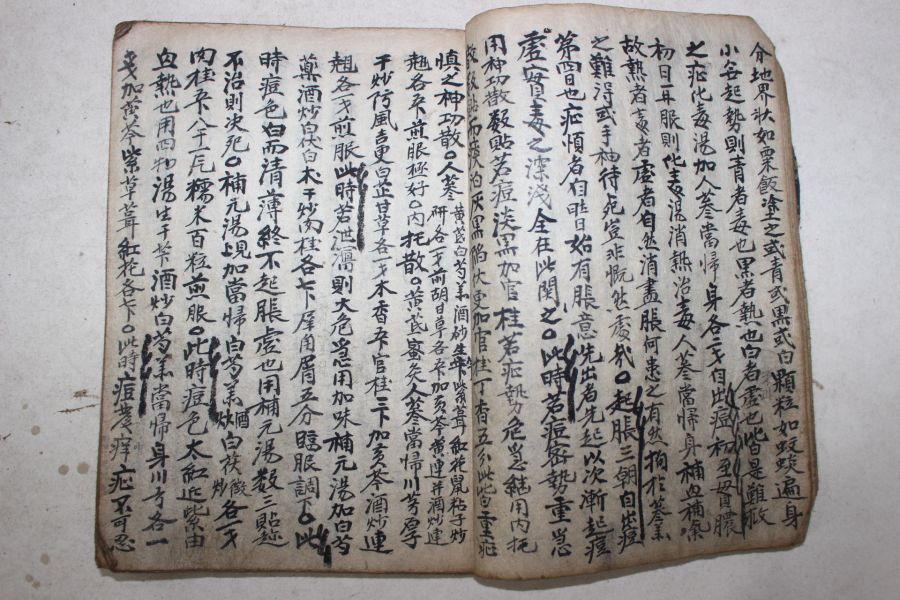 介地界狀如粟飯塗之或青或黑或白顆粒如蚊蟆遍身
小谷起勢則青者毒也黑者熱也白者虛也皆是難救
之症化毒湯加人參當歸身各二戔自出痘初至貫膿
初日耳服則化毒湯消熱治毒人參當歸身補血補氣
故熱者毒者虛者自然消盡脹何患之有然拘於參羔
之難得或手袖待死豈非慨然處哉○起脹三朝自出痘
第四日也症順者自昨日始有脹意先出者先起以次漸起痘
虛實毒之深淺全在此關之○此時若痘密勢重急
用神功散數貼若痘淡黑加官桂若症勢危急繼用內托
散數貼而痰泊灰黑陷伏更加官桂丁香五分此皆重症
慎之神功散○人參黃芪白芍羔酒炒生芐紫草茸紅花鼠粘子炒
研各一戔前胡甘草各五卜加黃芩黃連幷酒炒連
翹各五卜煎服極好○內托散○黃芪蜜灸人參當歸川芎厚
干炒防風吉更白芷甘草各一戔木香五卜官桂三卜加黃芩酒炒連
翹各一戔煎服此時若泄瀉則大危急用加味補元湯加白芍
藥酒炒白伏白木干炒肉桂各七卜犀角屑五分臨服調下○此
時痘色白而清薄終不起脹虛也用補元湯數三貼趂
不治則決死○補元湯晛加當歸白芍羔酒炒白茯微炒各一戔
肉桂五卜八干三片糯米百粒煎服○此時痘色太紅近紫由
血熱也用四物湯生干芐酒炒白芍羔當歸身川芎各一
戔加黃芩紫草茸紅花各七卜○此時痘癢痒症不可忍